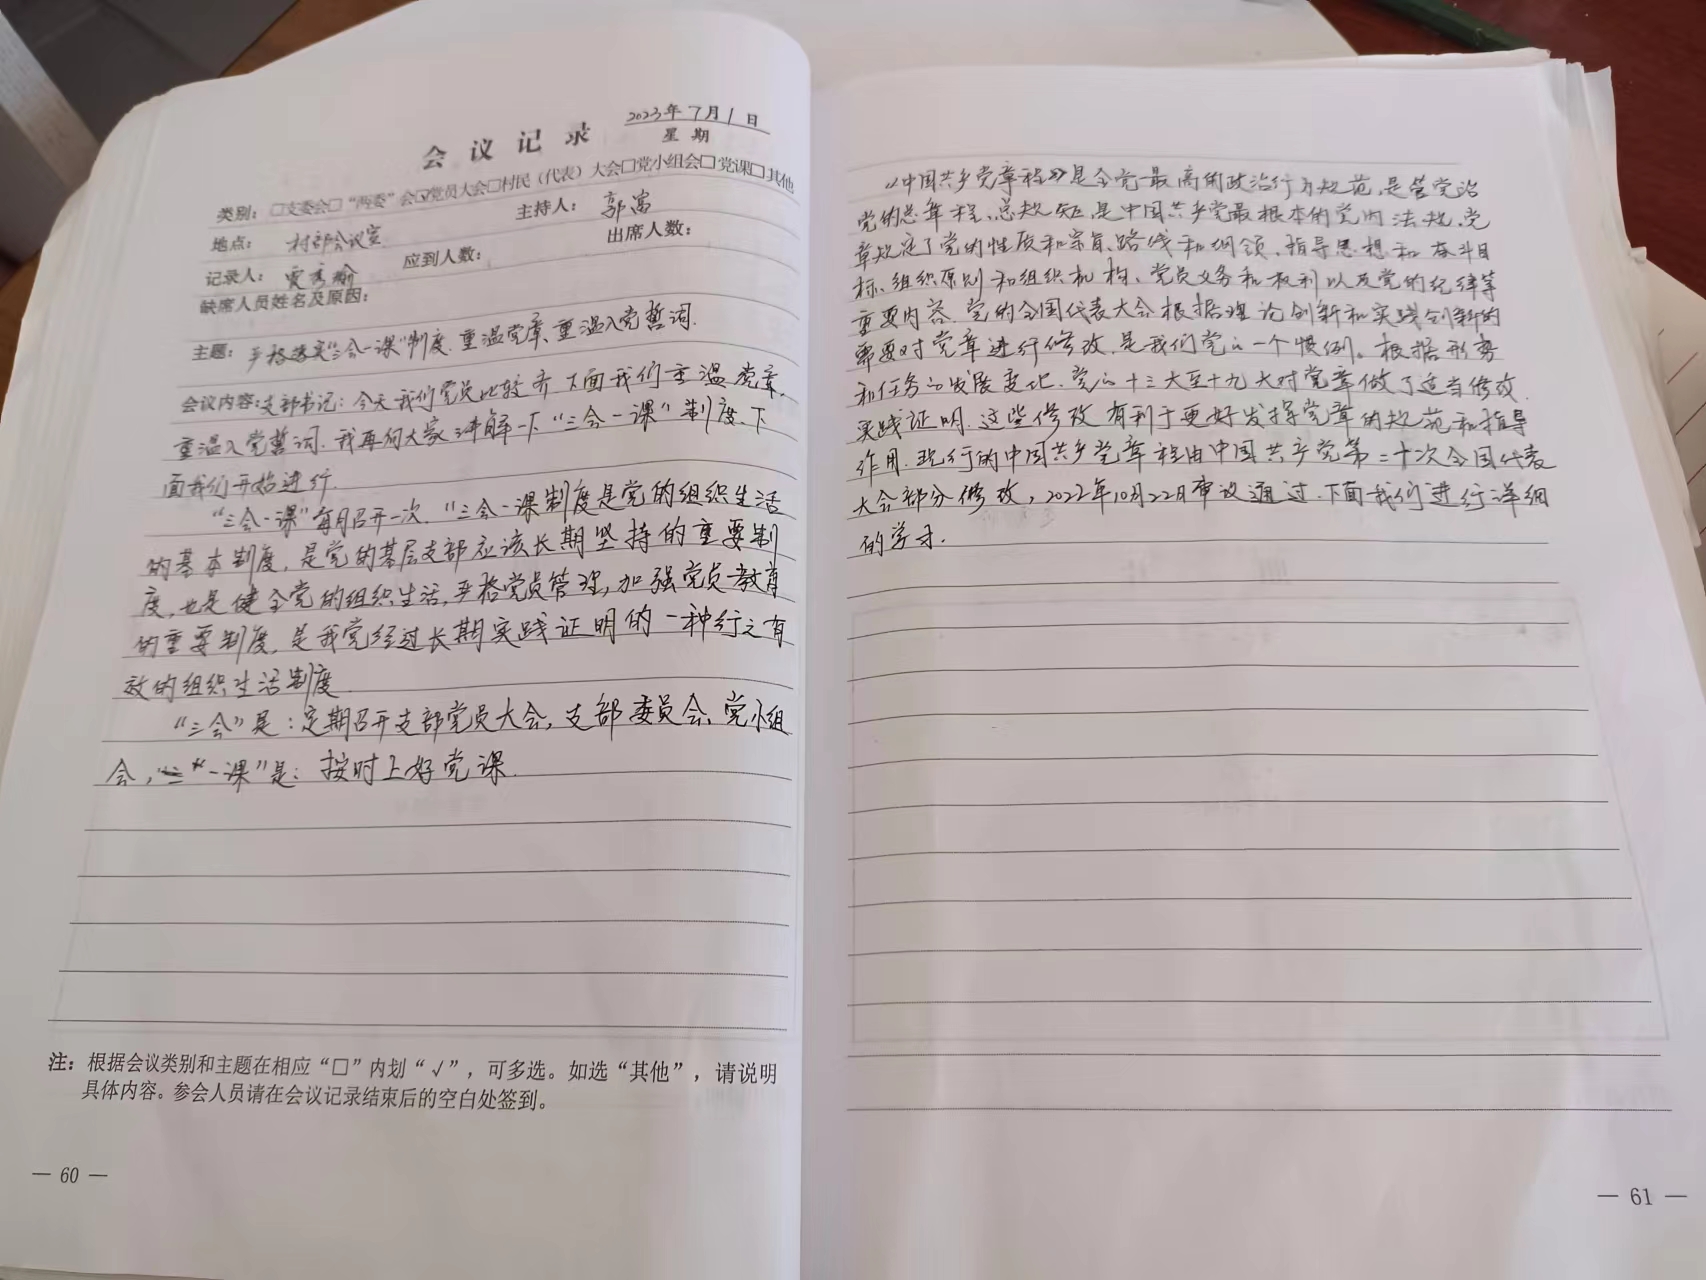 2023年7月1日
会议记录
星期
类别：□支委会□“两委”会☑党员大会□村民（代表）大会□党小组会□党课□其他
地点：村部会议室 主持人：郭富
记录人： 应到人数： 出席人数：
缺席人员姓名及原因：
主题：严格落实“三会一课”制度、重温党章、重温入党誓词.
会议内容：支部书记：今天我们党员比较齐 下面我们重温党章，
重温入党誓词. 我再向大家讲解一下“三会一课”制度、下
面我们开始进行.
“三会一课”每月召开一次.“三会一课制度是党的组织生活
的基本制度，是党的基层支部应该长期坚持的重要制
度，也是健全党的组织生活，严格党员管理，加强党员教育
的重要制度，是我党经过长期实践证明的一种行之有
效的组织生活制度.
“三会”是：定期召开支部党员大会，支部委员会、党小组
会，“一课”是：按时上好党课.
注：根据会议类别和主题在相应“□”内划“√”，可多选。如选“其他”，请说明
具体内容。参会人员请在会议记录结束后的空白处签到。
— 60 —
《中国共产党章程》是全党最高的政治行为规范，是管党治
党的总章程、总规矩，是中国共产党最根本的党内法规，党
章规定了党的性质和宗旨、路线和纲领、指导思想和奋斗目
标、组织原则和组织机构、党员义务和权利以及党的纪律等
重要内容. 党的全国代表大会根据理论创新和实践创新的
需要对党章进行修改，是我们党的一个惯例。根据形势
和任务的发展变化，党的十三大至十九大对党章做了适当修改.
实践证明，这些修改有利于更好发挥党章的规范和指导
作用. 现行的中国共产党章程由中国共产党第二十次全国代表
大会部分修改，2022年10月22日审议通过. 下面我们进行详细
的学习.
— 61 —